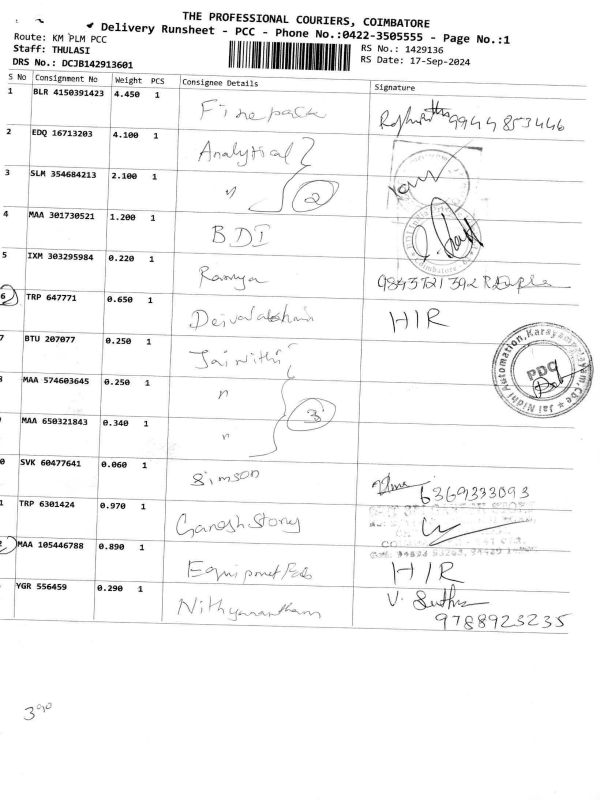 THE PROFESSIONAL COURIERS, COIMBATORE
Delivery Runsheet - PCC - Phone No.:0422-3505555 - Page No.:1
Route: KM PLM PCC
RS No.: 1429136
Staff: THULASI
RS Date: 17-Sep-2024
DRS No.: DCJB142913601
S No Consignment No Weight PCS Consignee Details Signature
1 BLR 4150391423 4.450 1 Finepack 9944853446
2 EDQ 16713203 4.100 1 Analytical
3 SLM 354684213 2.100 1 " 2
4 MAA 301730521 1.200 1 BDI
5 IXM 303295984 0.220 1 Ramya 9843721392
6 TRP 647771 0.650 1 HIR
7 BTU 207077 0.250 1 Jai Nithi
MAA 574603645 0.250 1 "
MAA 650321843 0.340 1 " 3
Jai Nidhi Automation, Karayampalayam, Cbe
PDC
0 SVK 60477641 0.060 1 Simson 6369333093
1 TRP 6301424 0.970 1 Ganesh Story
2 MAA 105446788 0.890 1 HIR
YGR 556459 0.290 1 Nithyanantham V. 9788923235
3